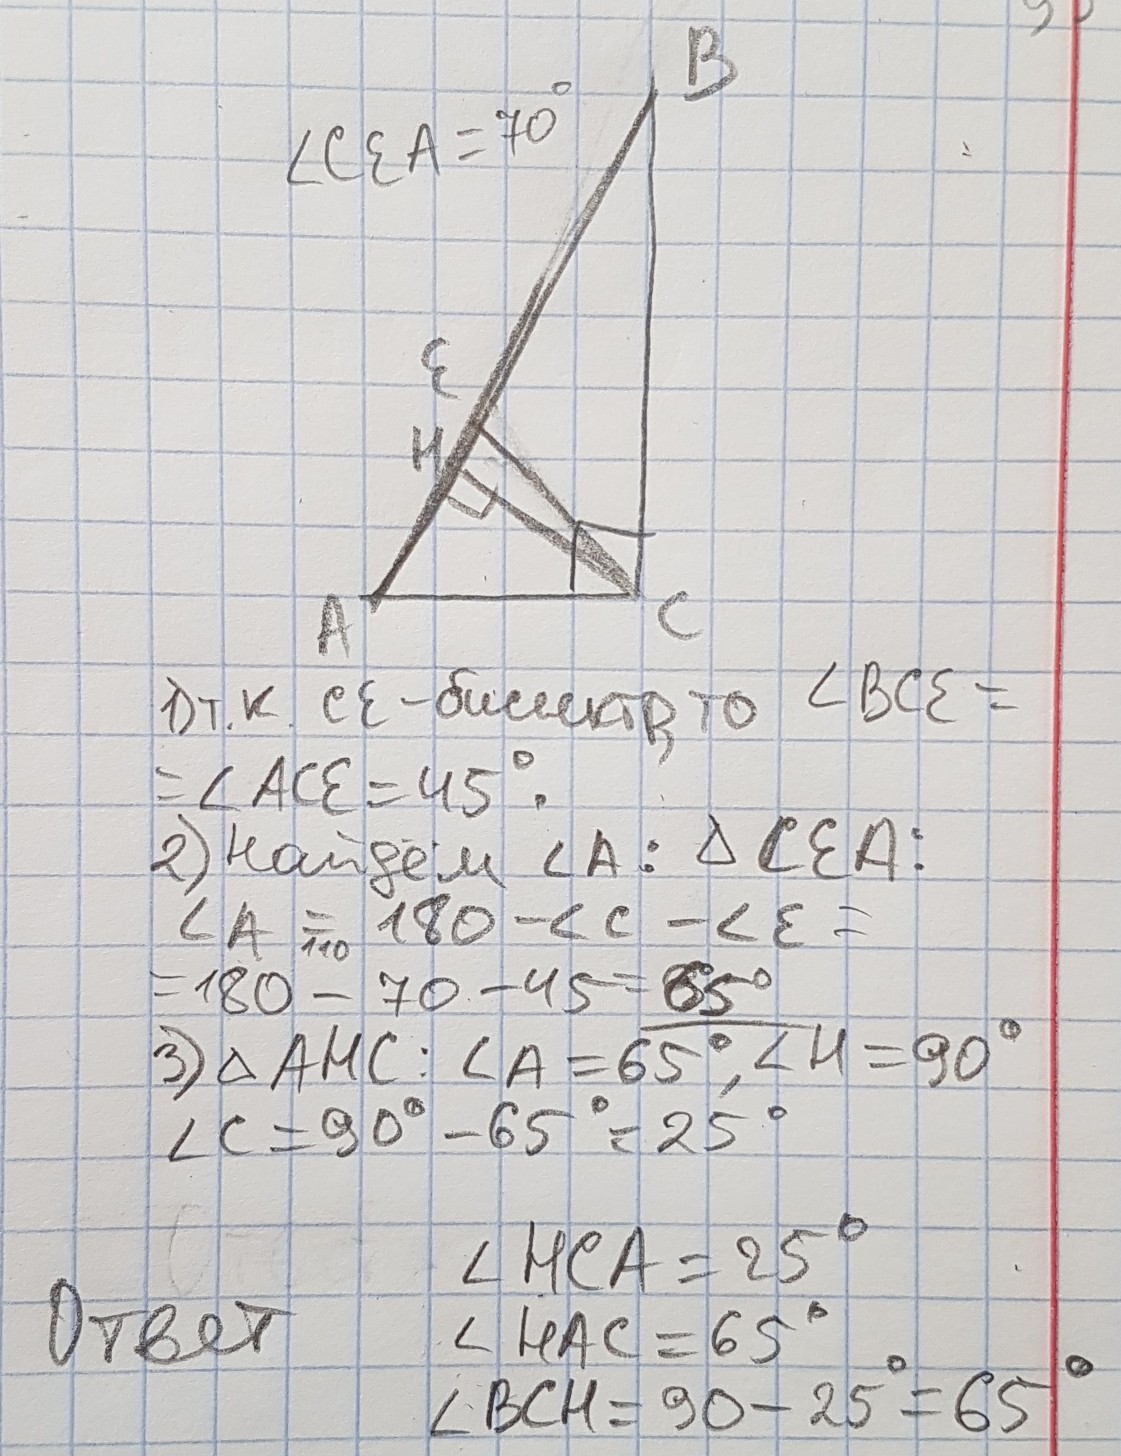 B
∠CEA = 70°
E
H
A
C
1) т.к. CE - биссектр, то ∠BCE =
= ∠ACE = 45°.
2) Найдём ∠A: △CEA:
∠A = 180 - ∠C - ∠E =
110
= 180 - 70 - 45 = 65°
3) △AHC: ∠A = 65°, ∠H = 90°
∠C = 90° - 65° = 25°
∠HCA = 25°
Ответ ∠HAC = 65°
∠BCH = 90 - 25° = 65°